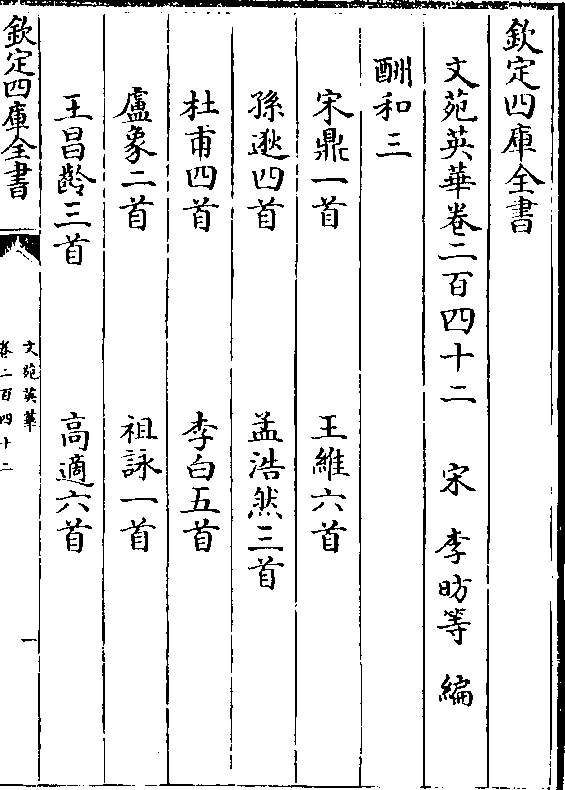 欽定四庫全書
文苑英華卷二百四十二　宋　李昉等　編
酬和三
宋鼎一首　王維六首
孫逖四首　孟浩然三首
杜甫四首　李白五首
盧象二首　祖詠一首
王昌齡三首　高適六首
欽定四庫全書
文苑英華
卷二百四十二
一